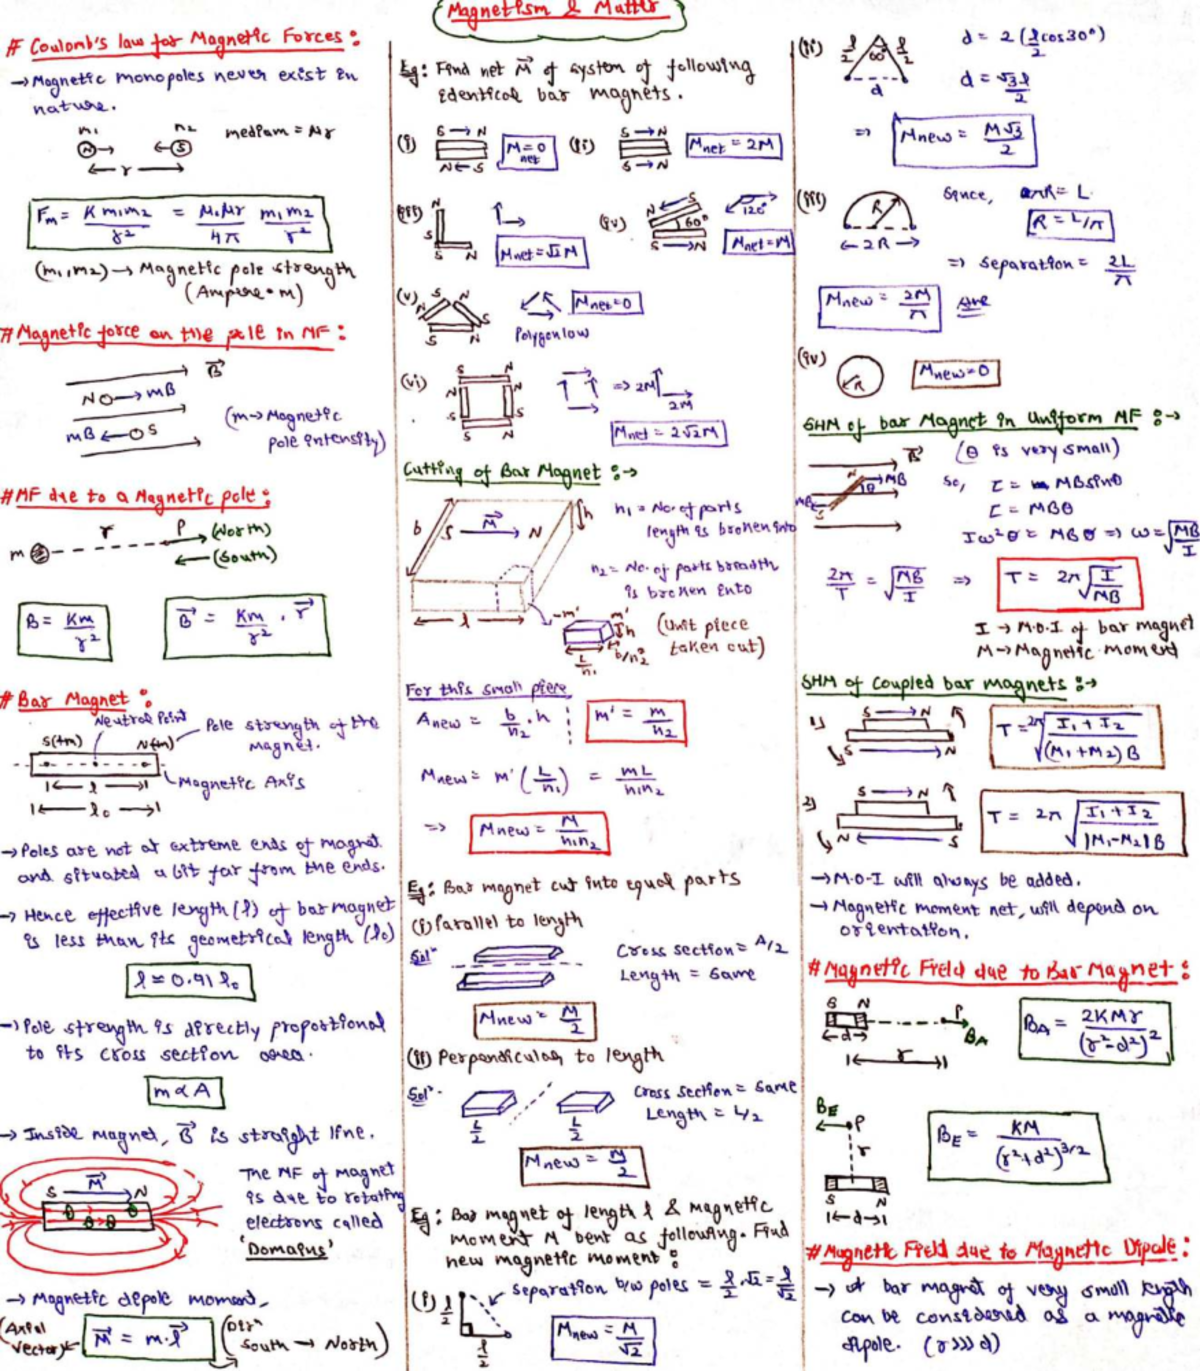 Magnetism & Matter
# Coulomb's law for Magnetic Forces :
→ Magnetic monopoles never exist in
nature.
m₁ m₂ medium = μr
N → ← S
← r →
Fm = K m₁m₂ / r² = μ₀μr / 4π m₁m₂ / r²
(m₁,m₂) → Magnetic pole strength
(Ampere·m)
# Magnetic force on the pole in MF :
B⃗
N → mB
mB ← S
(m → Magnetic
pole intensity)
# MF due to a Magnetic pole :
m r P → (North)
← (South)
B = Km / r²
B⃗ = Km / r² . r⃗
# Bar Magnet :
Neutral Point
S(+m) N(m)
Pole strength of the
magnet.
Magnetic Axis
l
l₀
→ Poles are not at extreme ends of magnet
and situated a bit far from the ends.
→ Hence effective length (l) of bar magnet
is less than its geometrical length (l₀)
l ≈ 0.91 l₀
→ Pole strength is directly proportional
to its cross section area.
m ∝ A
→ Inside magnet, B⃗ is straight line.
S M⃗ N
The MF of magnet
is due to rotating
electrons called
'Domains'
→ Magnetic dipole moment,
(Axial
vector) M⃗ = m.l⃗ (Dirⁿ
South → North)
Eg: Find net M⃗ of system of following
identical bar magnets.
(i) S → N
N ← S
M = 0
net
(ii) S → N
S → N
Mnet = 2M
(iii) N
S
S N
Mnet = √2 M
(iv) N S
60°
S → N
120°
Mnet = M
(v) S S
N N
S N
Mnet = 0
Polygon law
(vi) S N
N N
S S
S N
⇒ 2M
2M
Mnet = 2√2 M
Cutting of Bar Magnet :→
b S M⃗ N h
l
n₁ = No. of parts
length is broken into
n₂ = No. of parts breadth
is broken into
-m' m'
h
b/n₂
L/n₁
(Unit piece
taken out)
For this small piece
Anew = b/n₂ . h
m' = m/n₂
Mnew = m' (L/n₁) = mL/n₁n₂
⇒ Mnew = M/n₁n₂
Eg: Bar magnet cut into equal parts
(i) Parallel to length
Solⁿ
Cross section = A/2
Length = Same
Mnew = M/2
(ii) Perpendicular to length
Solⁿ.
L/2 L/2
Cross section = Same
Length = L/2
Mnew = M/2
Eg: Bar magnet of length l & magnetic
moment M bent as following. Find
new magnetic moment :
(i) l/2
l/2
separation b/w poles = l/2 .√2 = l/√2
Mnew = M/√2
(ii) l/2 60° l/2
d
d = 2 (l/2 cos30°)
d = √3 l/2
⇒ Mnew = M√3/2
(iii) R
← 2R →
Since, πR = L
R = L/π
⇒ Separation = 2L/π
Mnew = 2M/π
(iv) R
Mnew = 0
SHM of bar Magnet in Uniform MF :→
B⃗ (θ is very small)
N MB
θ
MB S
so, τ = MBsinθ
τ = MBθ
Iω²θ = MBθ ⇒ ω = √MB/I
2π/T = √MB/I ⇒ T = 2π√I/MB
I → M.O.I of bar magnet
M → Magnetic moment
SHM of Coupled bar magnets :→
1) S → N
S N
T = 2π √I₁+I₂/(M₁+M₂)B
2) S → N
N S
T = 2π √I₁+I₂/|M₁-M₂|B
→ M.O.I will always be added.
→ Magnetic moment net, will depend on
orientation.
# Magnetic Field due to Bar Magnet :
S N P
BA
← d →
r
BA = 2KMr / (r²-d²)²
BE P
r
S N
← d →
BE = KM / (r²+d²)^3/2
# Magnetic Field due to Magnetic Dipole :
→ A bar magnet of very small length
can be considered as a magnetic
dipole. (r>>>d)